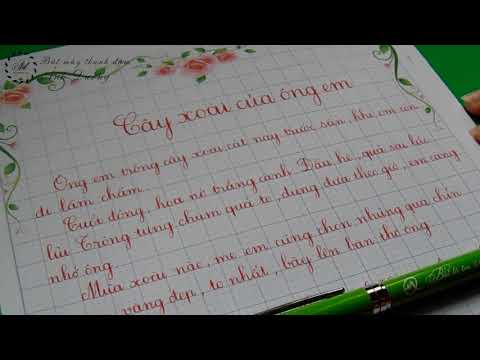 Bút mày thanh đậm
Ánh Dương
Cây xoài của ông em
Ông em trồng cây xoài cát này trước sân, khi em còn
đi lẫm chẫm.
Cuối đông, hoa nở trắng cành. Đầu hè, quả sai lúc
lỉu. Trông từng chùm quả to, đung đưa theo gió, em càng
nhớ ông.
Mùa xoài nào, mẹ em cũng chọn những quả chín
vàng đẹp, to nhất, bày lên bàn thờ ông.